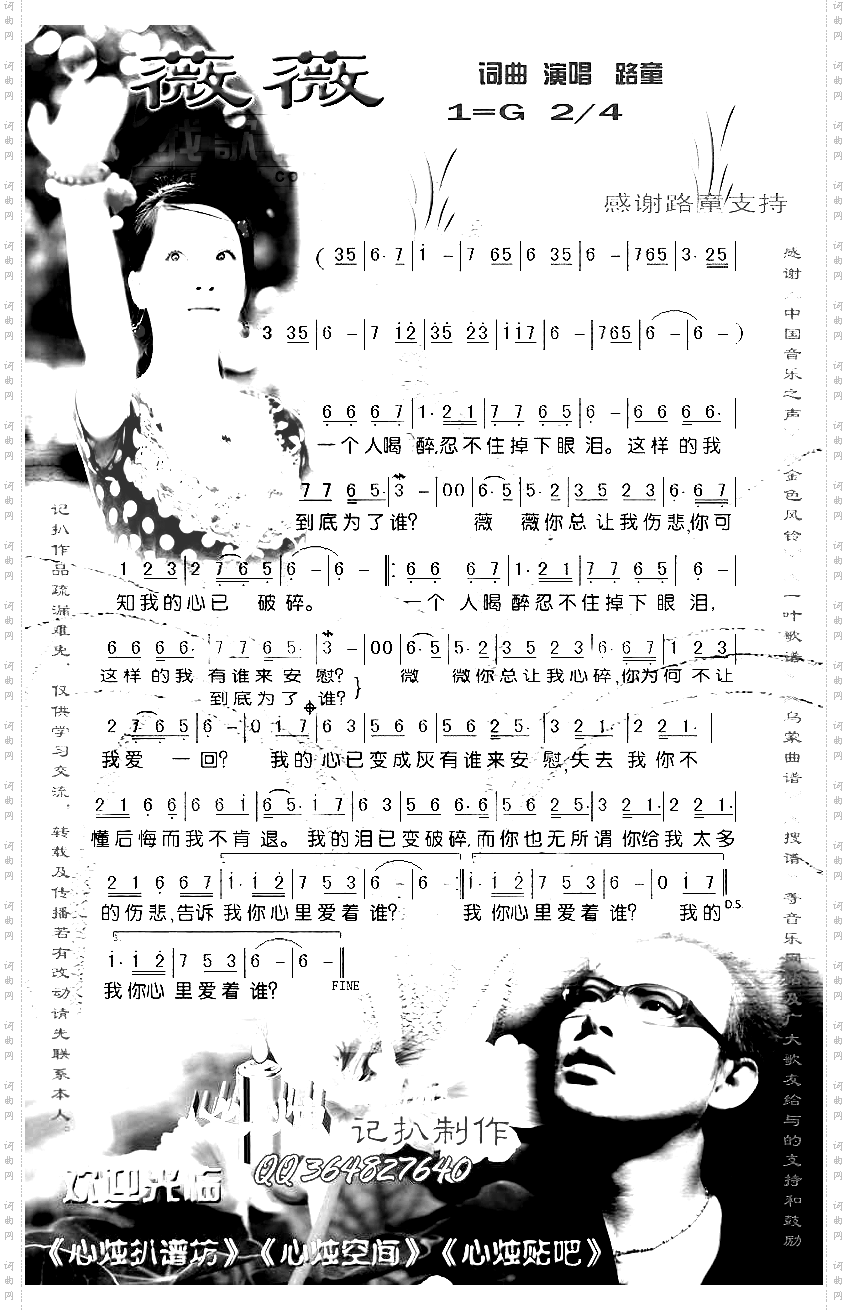 薇薇
词曲 演唱 路童
1=G 2/4
感谢路童支持
( 35 | 6· 7 | i - | 7 65 | 6 35 | 6 - | 765 | 3· 25 |
3 35 | 6 - | 7 i2 | 35 23 | ii7 | 6 - | 765 | 6 - | 6 - )
6 6 6 7 | 1· 2 1 | 7 7 6 5 | 6 - | 6 6 6 6· |
一个人喝 醉忍不住掉下眼 泪。这样 的我
7 7 6 5· | 3 - | 0 0 | 6· 5 | 5· 2 | 3 5 2 3 | 6· 6 7 |
到底为了谁? 薇 薇你总 让我伤悲,你可
1 2 3 | 2 7 6 5 | 6 - | 6 - :| 6 6 6 7 | 1· 2 1 | 7 7 6 5 | 6 - |
知我的心已 破碎。 一个 人喝 醉忍不住掉下 眼 泪,
6 6 6 6· | 7 7 6 5· | 3 - | 0 0 | 6· 5 | 5· 2 | 3 5 2 3 | 6· 6 7 | 1 2 3 |
这样 的我 有谁来安 慰? 微 微你总让我心碎,你为何 不让
到底为了 谁? }
2 7 6 5 | 6 - | 0 i 7 | 6 3 | 5 6 6 6 | 5 6 2 5· | 3 2 1 | 2 2 1· |
我爱 一回? 我的心已变成灰有谁来安 慰,失去 我 你不
2 1 6 6 | 6 6 i | 6 5· i 7 | 6 3 | 5 6 6· 6 | 5 6 2 5 | 3 2 1· | 2 2 1· |
懂后悔而我不肯 退。 我的泪已变破碎,而你也无所谓 你给我 太多
2 1 6 6 7 | i· i 2 | 7 5 3 | 6 - | 6 - :| i· i 2 | 7 5 3 | 6 - | 0 i 7 |
的伤悲,告诉 我你心里爱着 谁? 我 你心里爱着 谁? 我的 D.S.
i· i 2 | 7 5 3 | 6 - | 6 - ‖
我你心 里爱着 谁? FINE
记扒作品疏漏难免，仅供学习交流，转载及传播若有改动请先联系本人。
记扒制作
QQ364827640
欢迎光临
《心烛扒谱坊》《心烛空间》《心烛贴吧》
词曲网